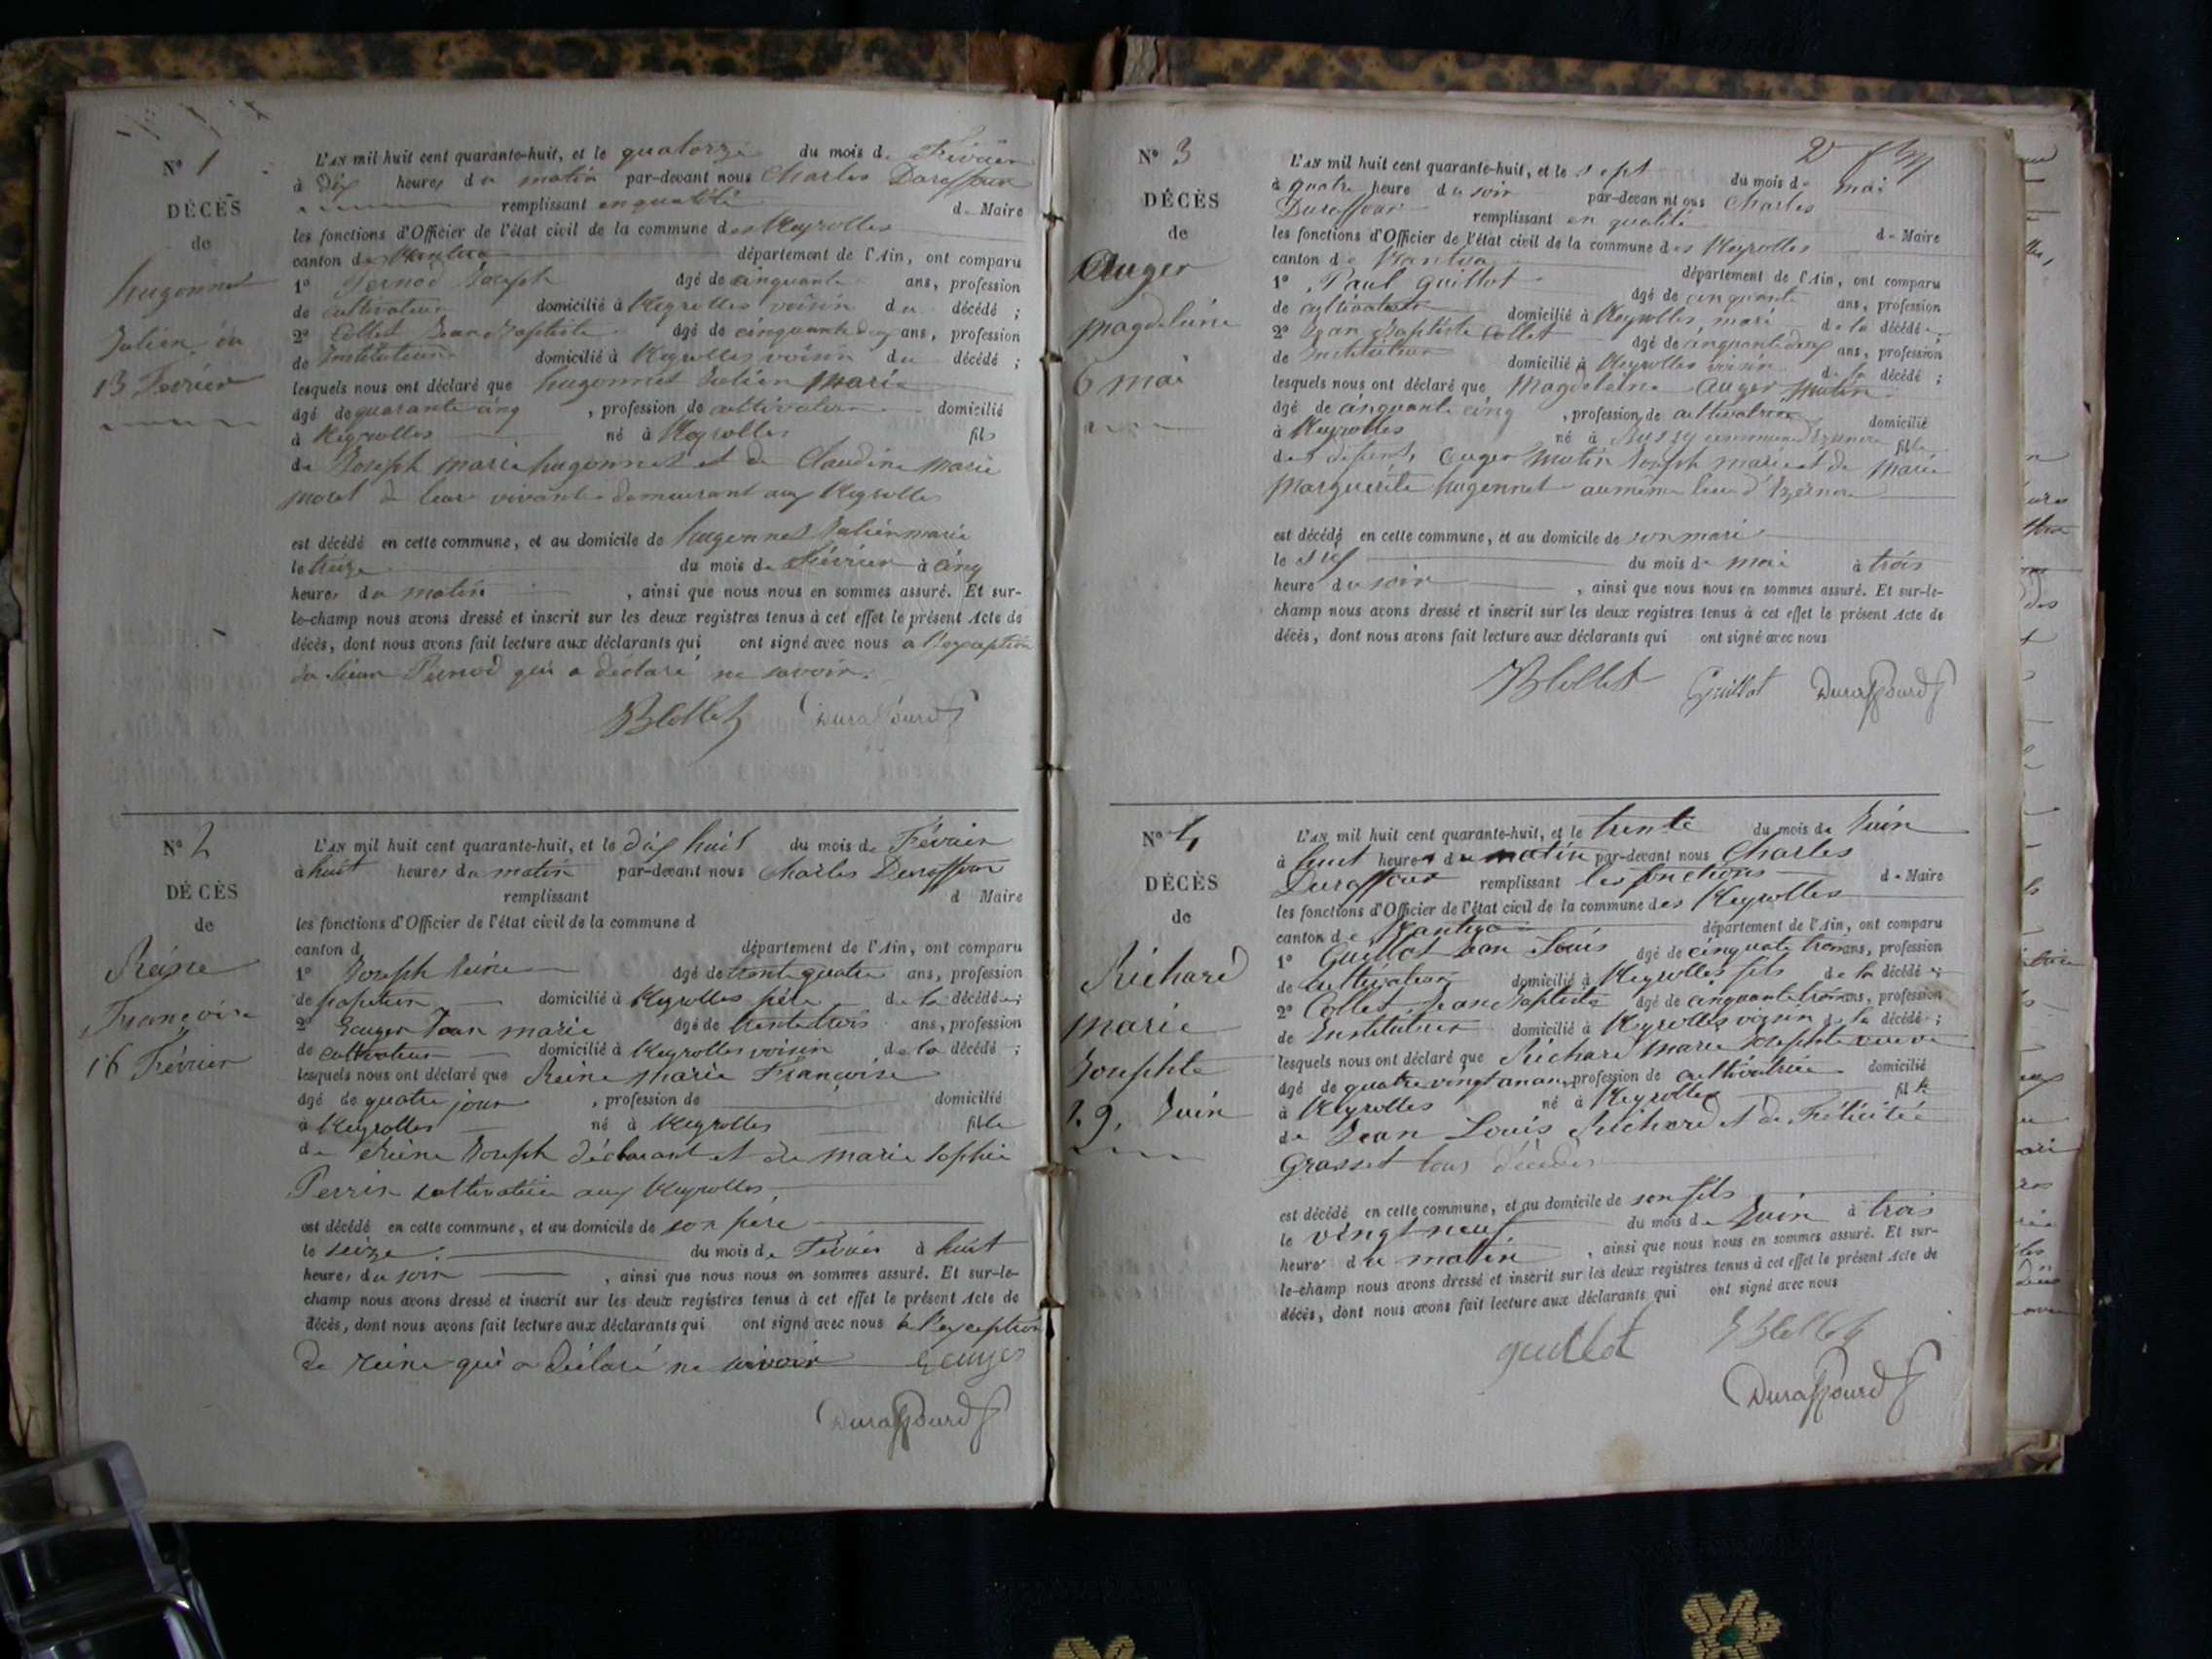 N° 1
DÉCÈS
de
hugonnet
Julien
13 Février
L'AN mil huit cent quarante-huit, et le quatorze du mois de Février
à dix heures du matin par-devant nous Charles Duraffour
remplissant en qualité de Maire
les fonctions d'Officier de l'état civil de la commune des Neyrolles
canton de Nantua département de l'Ain, ont comparu
1° Pernod Joseph âgé de cinquante ans, profession
de cultivateur domicilié à Neyrolles voisin du décédé ;
2° Collet Jean Baptiste âgé de cinquante deux ans, profession
de Instituteur domicilié à Neyrolles voisin du décédé ;
lesquels nous ont déclaré que hugonnet Julien Marie
âgé de quarante cinq , profession de cultivateur domicilié
à Neyrolles né à Neyrolles fils
de Joseph marie hugonnet et de Claudine Marie
moret de leur vivant demeurant aux Neyrolles
est décédé en cette commune, et au domicile de hugonnet Julien marie
le treize du mois de Février à cinq
heures du matin , ainsi que nous nous en sommes assuré. Et sur-
le-champ nous avons dressé et inscrit sur les deux registres tenus à cet effet le présent Acte de
décès, dont nous avons fait lecture aux déclarants qui ont signé avec nous a l'exception
du sieur Pernod qui a déclaré ne savoir.
JBCollet Duraffourd
N° 2
DÉCÈS
de
Reine
Françoise
16 Février
L'AN mil huit cent quarante-huit, et le dix huit du mois de Février
à huit heures du matin par-devant nous Charles Duraffour
remplissant d Maire
les fonctions d'Officier de l'état civil de la commune d
canton d département de l'Ain, ont comparu
1° Joseph Reine âgé de trente quatre ans, profession
de papetier domicilié à Neyrolles père de la décédée ;
2° Gauger Jean marie âgé de trente trois ans, profession
de cultivateur domicilié à Neyrolles voisin de la décédé ;
lesquels nous ont déclaré que Reine Marie Françoise
âgé de quatre jour , profession de domicilié
à Neyrolles né à Neyrolles fille
de Reine Joseph déclarant et de marie Sophie
Perrin cultivatrice aux Neyrolles,
est décédé en cette commune, et au domicile de son père
le seize du mois de Février à huit
heures du soir , ainsi que nous nous en sommes assuré. Et sur-le-
champ nous avons dressé et inscrit sur les deux registres tenus à cet effet le présent Acte de
décès, dont nous avons fait lecture aux déclarants qui ont signé avec nous a l'exception
de reine qui a déclaré ne savoir
Duraffourd
2
N° 3
DÉCÈS
de
Auger
magdeleine
6 mai
L'AN mil huit cent quarante-huit, et le sept du mois de mai
à quatre heure du soir par-devan nt ous Charles
Duraffour remplissant en qualité de Maire
les fonctions d'Officier de l'état civil de la commune des Neyrolles
canton de Nantua département de l'Ain, ont comparu
1° Paul Guillot âgé de cinquante ans, profession
de cultivateur domicilié à Neyrolles, mari de la décédé ;
2° Jean Baptiste Collet âgé de cinquante deux ans, profession
de Instituteur domicilié à Neyrolles voisin de la décédé ;
lesquels nous ont déclaré que Magdeleine Auger Mutin
âgé de cinquante cinq , profession de cultivatrice domicilié
à Neyrolles né à Bussy commune d'Izernore fille
des défunts, Auger Mutin Joseph marie et de Marie
Marguerite hugonnet au même lieu d'Izernore
est décédé en cette commune, et au domicile de son mari
le six du mois de mai à trois
heure du soir , ainsi que nous nous en sommes assuré. Et sur-le-
champ nous avons dressé et inscrit sur les deux registres tenus à cet effet le présent Acte de
décès, dont nous avons fait lecture aux déclarants qui ont signé avec nous
JBCollet Guillot Duraffourd
N° 4
DÉCÈS
de
Richard
marie
Josephte
29, Juin
L'AN mil huit cent quarante-huit, et le trente du mois de Juin
à huit heures du matin par-devant nous Charles
Duraffour remplissant les fonctions de Maire
les fonctions d'Officier de l'état civil de la commune des Neyrolles
canton de Nantua département de l'Ain, ont comparu
1° Guillot Jean Louis âgé de cinquate trois ans, profession
de cultivateur domicilié à Neyrolles fils de la décédé ;
2° Collet Jean Baptiste âgé de cinquante trois ans, profession
de Instituteur domicilié à Neyrolles voisin de la décédé ;
lesquels nous ont déclaré que Richard Marie Josephte veuve
âgé de quatre vingt an ans, profession de cultivatrice domicilié
à Neyrolles né à Neyrolles fille
de Jean Louis Richard et de Félicitée
Grasset tous décédés
est décédé en cette commune, et au domicile de son fils
le vingt neuf du mois de Juin à trois
heure du matin , ainsi que nous nous en sommes assuré. Et sur-
le-champ nous avons dressé et inscrit sur les deux registres tenus à cet effet le présent Acte de
décès, dont nous avons fait lecture aux déclarants qui ont signé avec nous
guillot JBCollet
Duraffourd